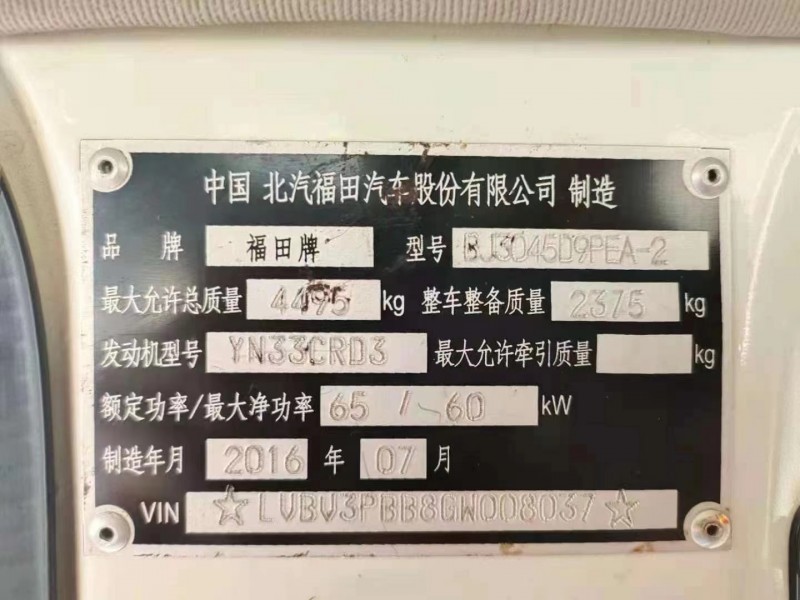 中国 北汽福田汽车股份有限公司 制造
品 牌 福田牌 型号 BJ3045D9PEA-2
最大允许总质量 4495 kg 整车整备质量 2375 kg
发动机型号 YN33CRD3 最大允许牵引质量 kg
额定功率/最大净功率 65 / 60 kW
制造年月 2016 年 07 月
VIN ☆LVBV3PBB8GW008037☆